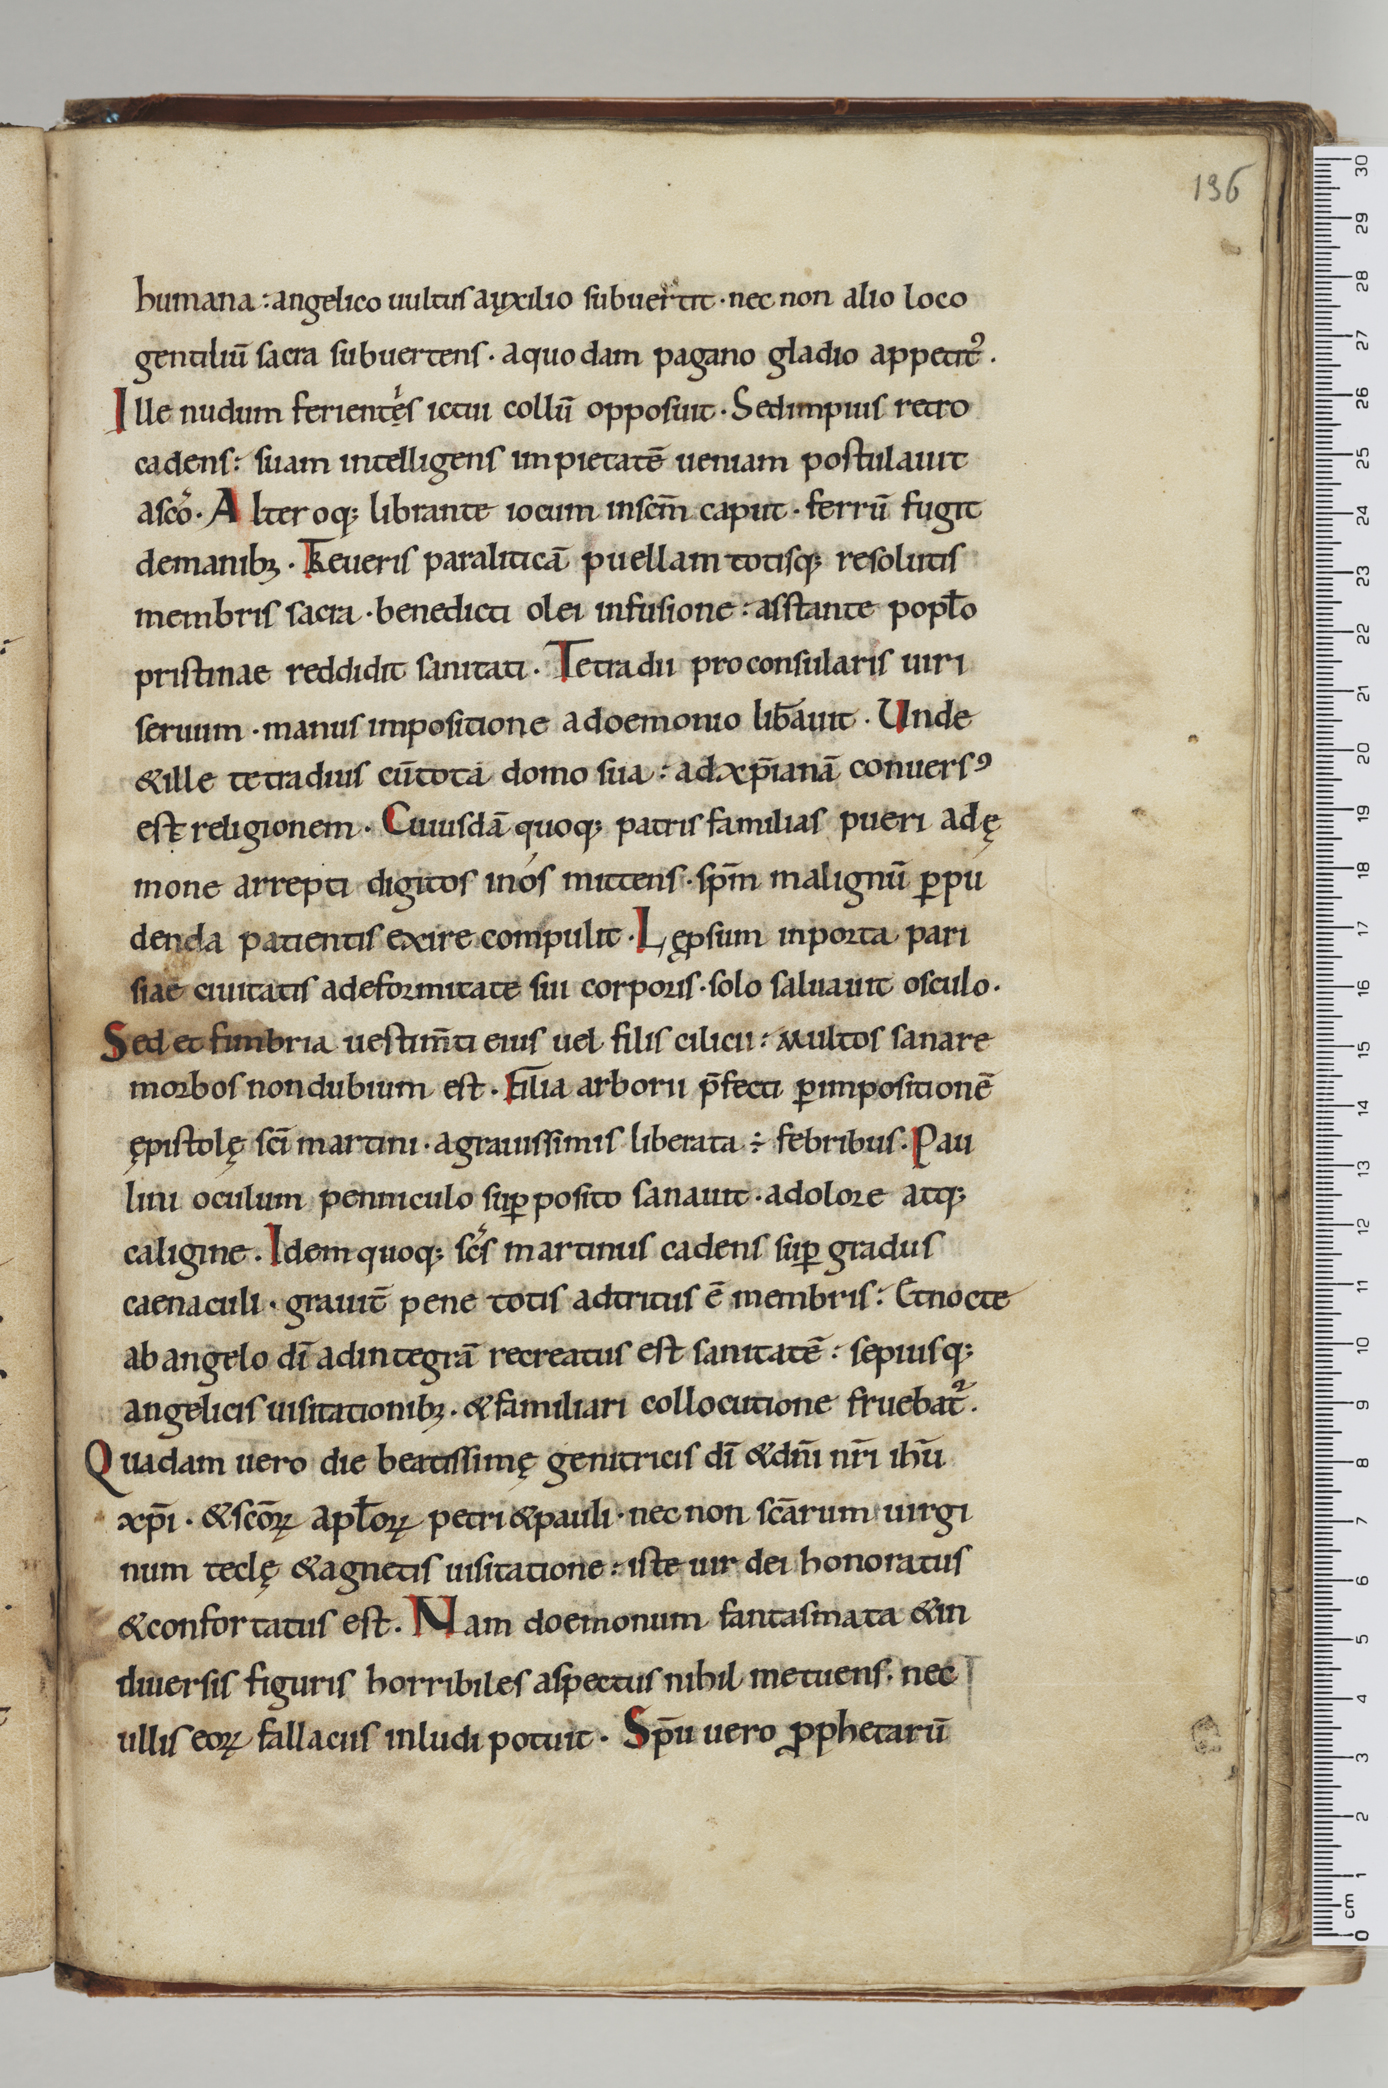 136
humana : angelico uultus auxilio subuertit · nec non alio loco
gentiliū sacra subuertens · aquodam pagano gladio appetit᷑ .
Ille nudum ferientęs ictui collū opposuit · Sedimpius retro
cadens : suam intelligens impietatē ueniam postulauit
ascō · Alteroq; librante iocum inscm̄ caput · ferrū fugit
demanibꝫ · Treueris paraliticā puellam totisq; resolutis
membris sacra · benedicti olei infusione : asstante popło
pristinae reddidit sanitati . Tetradii proconsularis uiri
seruum · manus impositione adoemonio lib̄auit · Unde
&ille tetradius cū tota domo sua : adxp̄ianā conuersꝰ
est religionem · Cuiusdā quoq; patris familias pueri adę
mone arrepti digitos inós mittens · sp̄m malignū ꝑpu
denda patientis exire compulit · Lępsum inporta pari
siae ciuitatis adeformitate sui corporis · solo saluauit osculo ·
Sed et fimbria uestim̄ti eius uel filis cilicii : multos sanare
morbos nondubium est · Filia arborii p̄fecti ꝑimpositionē
ępistolę sc̄i martini · agrauissimis liberata ÷ febribus · Pau
lini oculum penniculo suꝑposito sanauit · adolore atq;
caligine . Idem quoq; sc̄s martinus cadens suꝑ gradus
caenaculi · grauit̄ pene totis adtritus ē membris : Et nocte
ab angelo dī adintegrā recreatus est sanitatē : sepiusq;
angelicis uisitationibꝫ · &familiari collocutione fruebat᷑ .
Quadam uero die beatissimę genitricis dī &dn̄i nr̄i ihū
xp̄i · &scōꝝ apłoꝝ petri &pauli · nec non scārum uirgi
num teclę &agnetis uisitatione : iste uir dei honoratus
&confortatus est . Nam doemonum fantasmata &in
diuersis figuris horribiles aspectus nihil metuens · nec
ullis eoꝝ fallaciis inludi potuit · Sp̄u uero ꝓphetarū